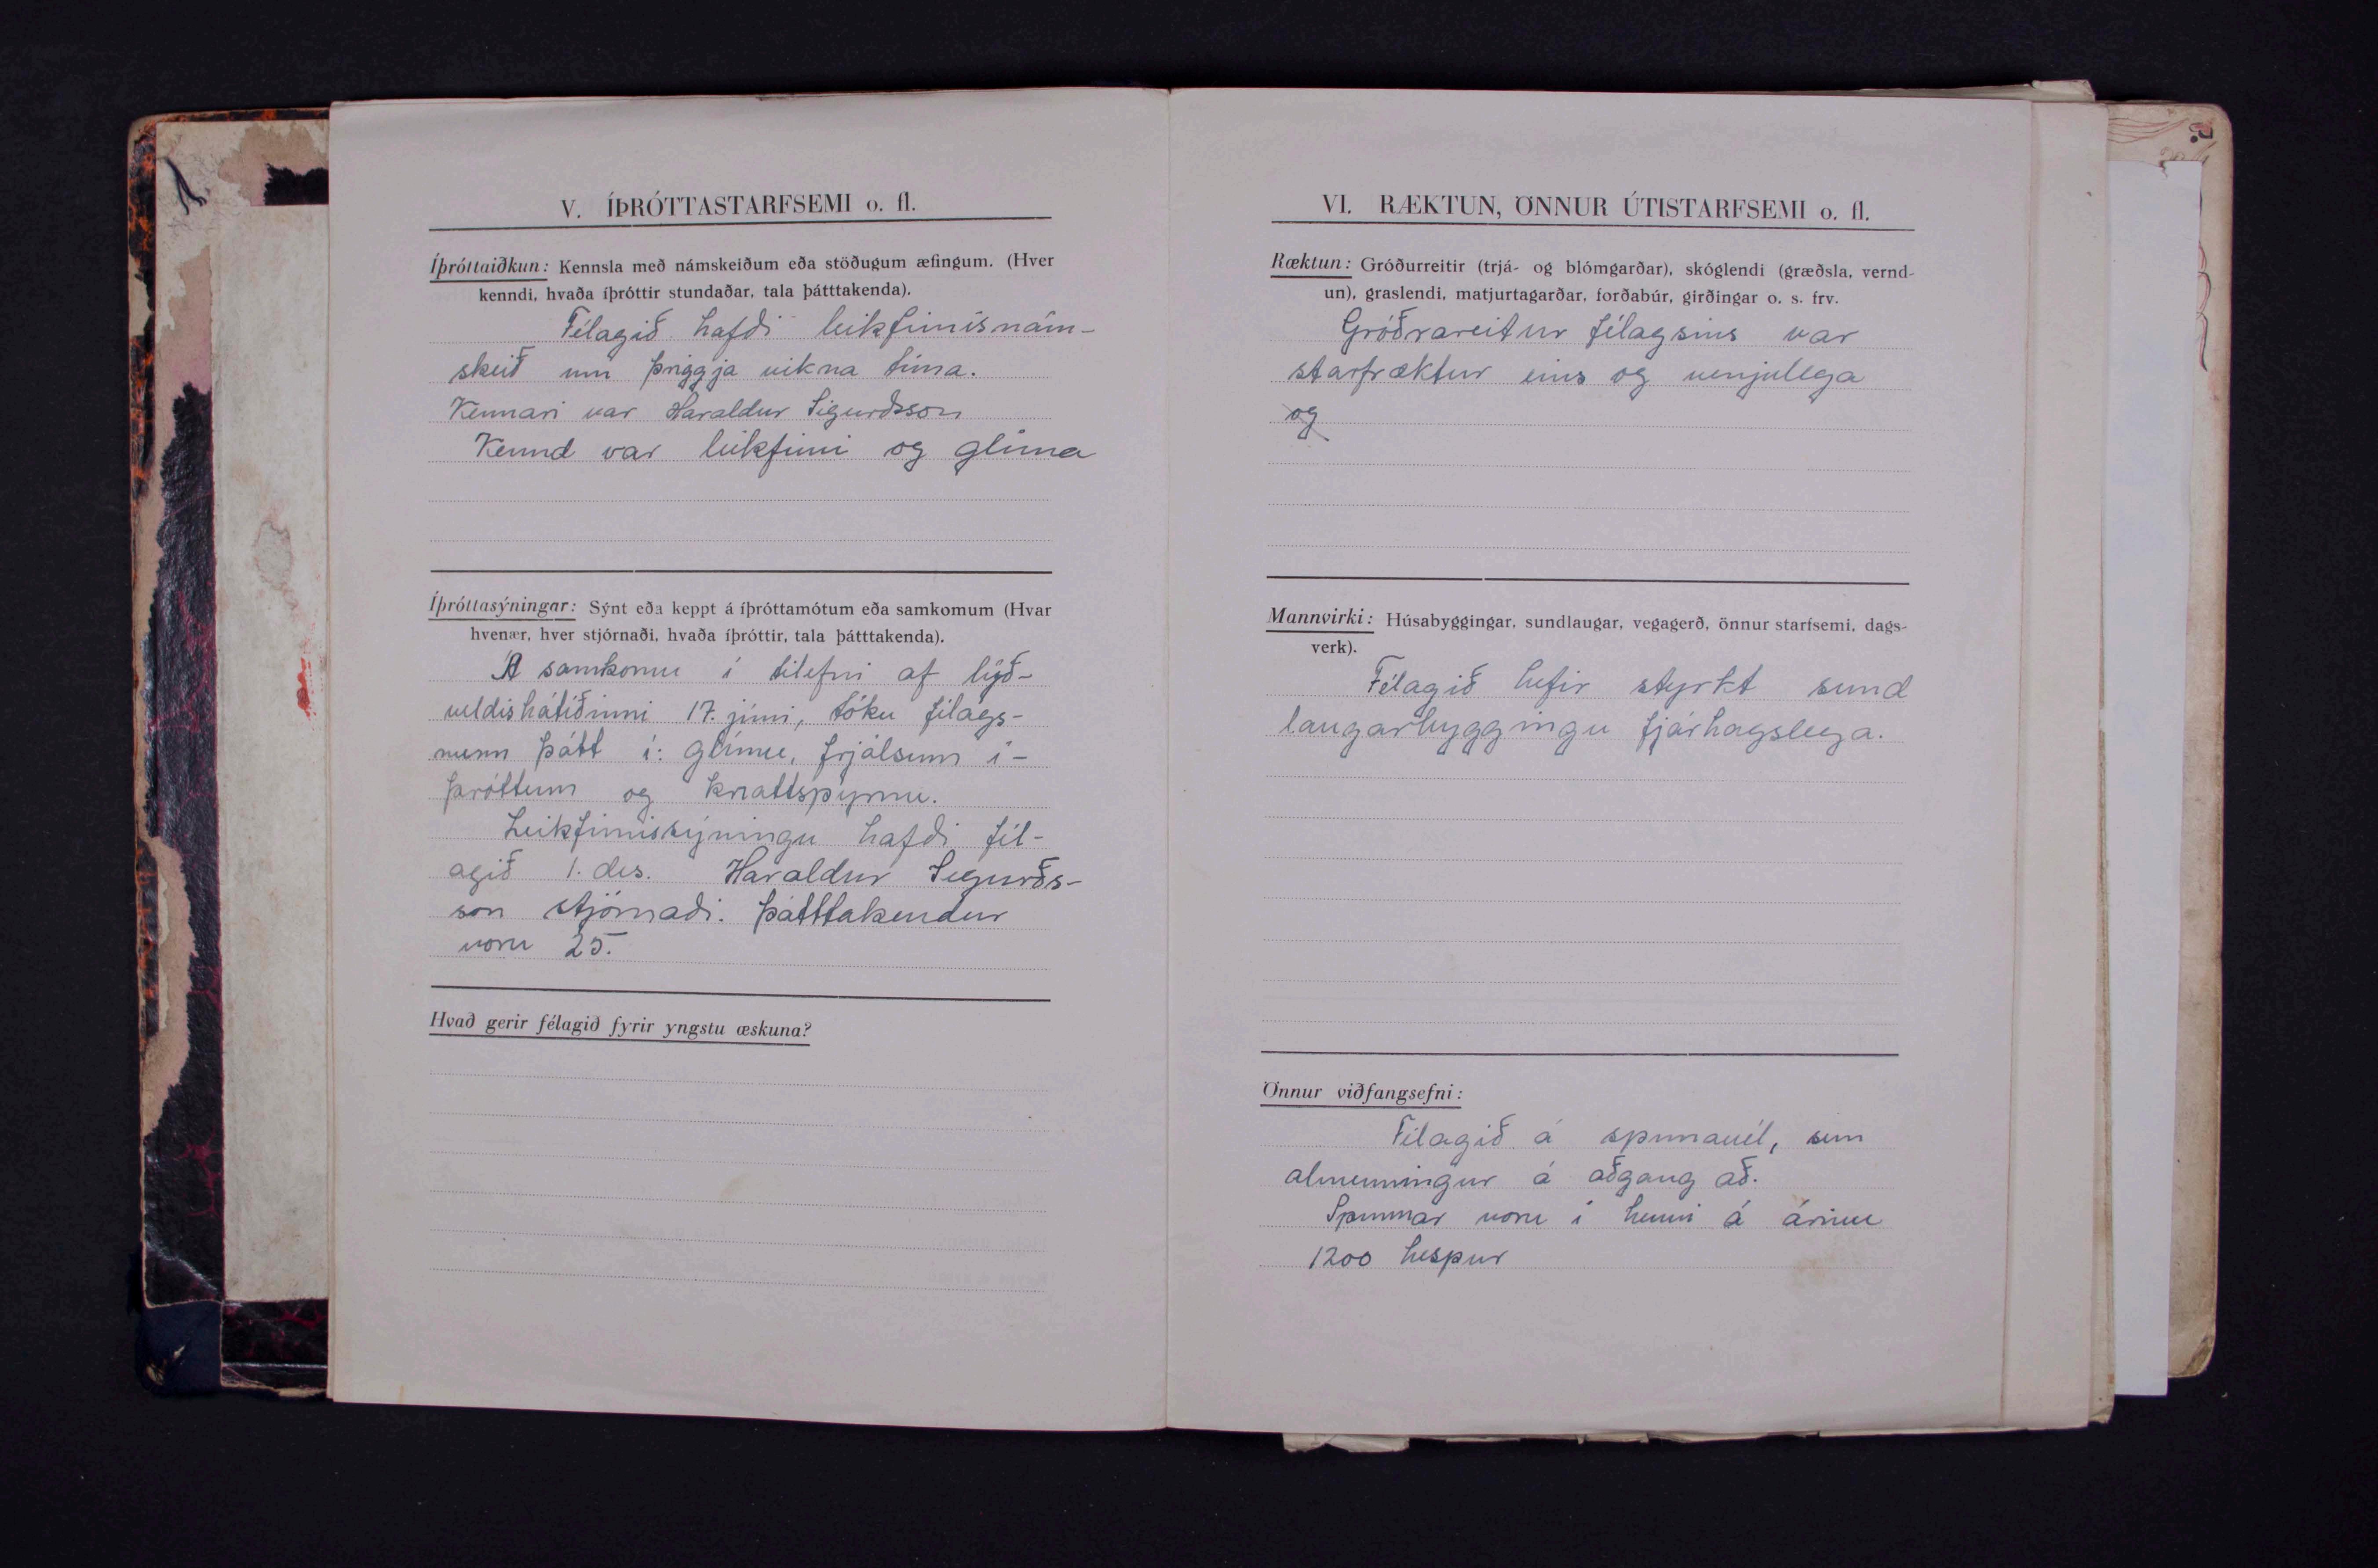 V. ÍÞRÓTTASTARFSEMI o. fl.
Íþróttaiðkun: Kennsla með námskeiðum eða stöðugum æfingum. (Hver
kenndi, hvaða íþróttir stundaðar, tala þátttakenda).
Félagið hafði leikfimisnám-
skeið um þriggja vikna tíma.
Kennari var Haraldur Sigurðsson
Kennd var leikfimi og glíma
Íþróttasýningar: Sýnt eða keppt á íþróttamótum eða samkomum (Hvar
hvenær, hver stjórnaði, hvaða íþróttir, tala þátttakenda).
Á samkomu í tilefni af lýð-
veldishátíðinni 17. júní, tóku félags-
menn þátt í: glímu, frjálsum í-
þróttum og knattspyrnu.
Leikfimissýningu hafði fél-
agið 1. des. Haraldur Sigurðs-
son stjórnaði. Þátttakendur
voru 25.
Hvað gerir félagið fyrir yngstu æskuna?
VI. RÆKTUN, ÖNNUR ÚTISTARFSEMI o. fl.
Ræktun: Gróðurreitir (trjá- og blómgarðar), skóglendi (græðsla, vernd-
un), graslendi, matjurtagarðar, forðabúr, girðingar o. s. frv.
Gróðrareitur félagsins var
starfræktur eins og venjulega
og
Mannvirki: Húsabyggingar, sundlaugar, vegagerð, önnur starfsemi, dags-
verk).
Félagið hefir styrkt sund
laugarbyggingu fjárhagslega.
Önnur viðfangsefni:
Félagið á spunavél, sem
almenningur á aðgang að.
Spunnar voru í henni á árinu
1200 hespur